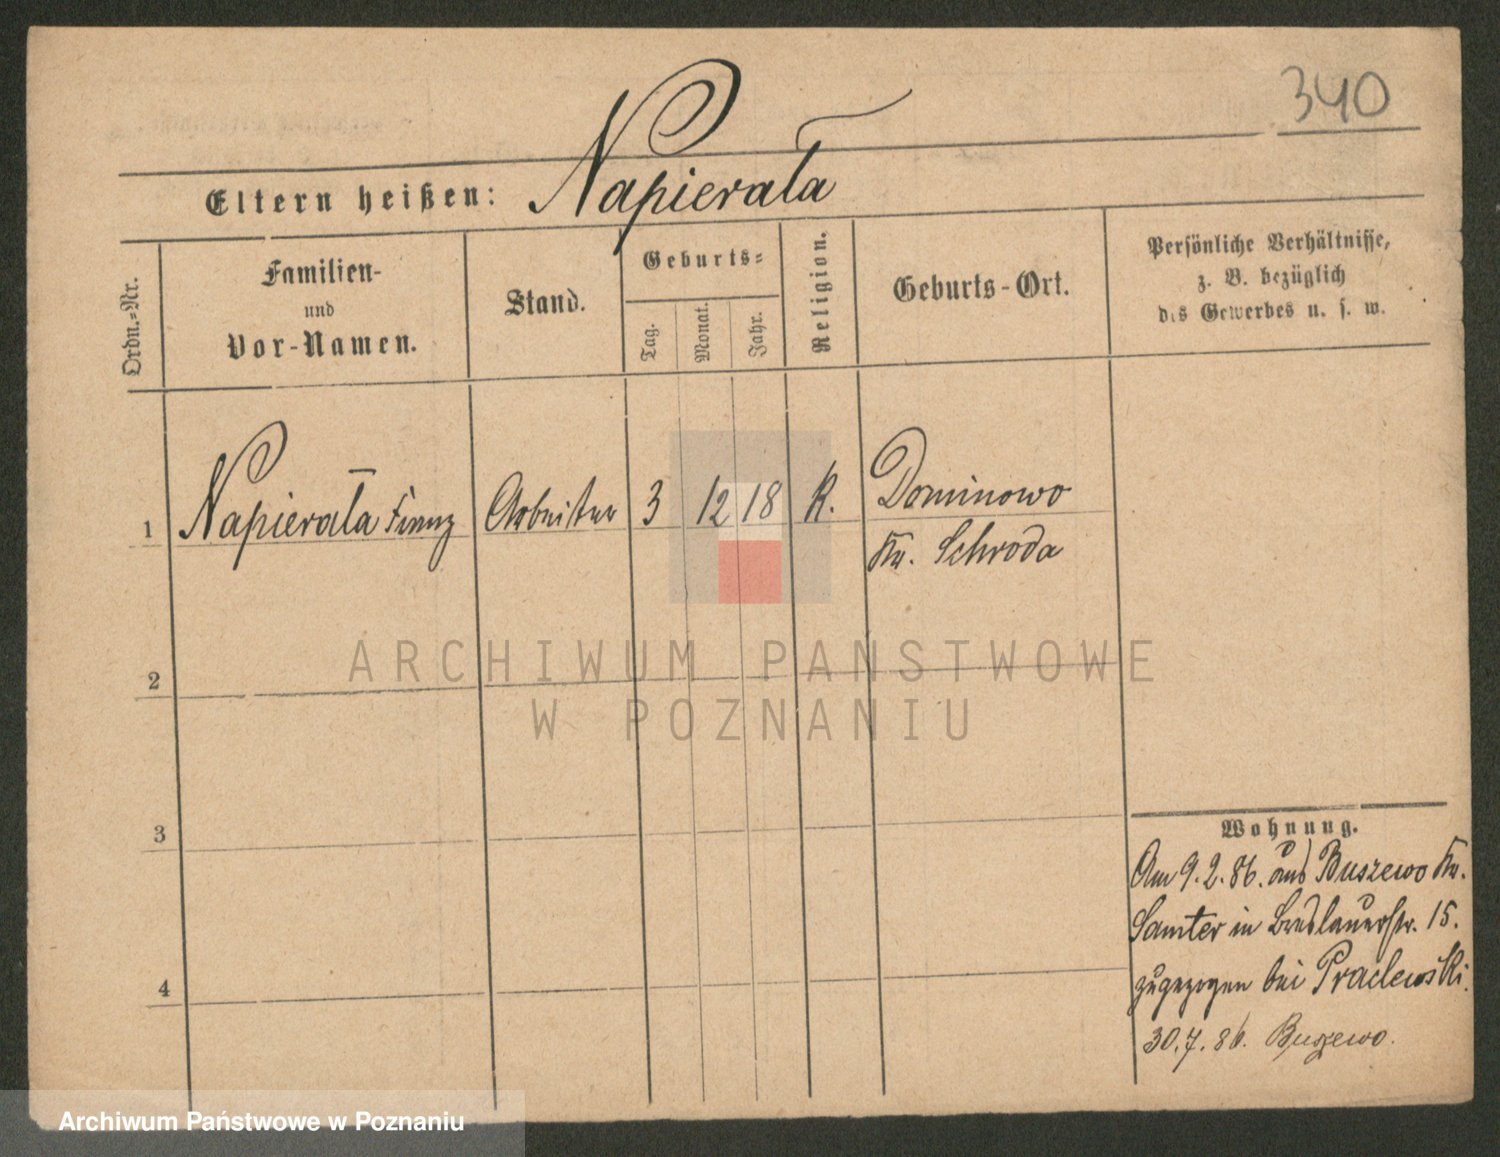 340
Eltern heißen: Napierała
Ordn.-Nr.
Familien-
und
Vor-Namen.
Stand.
Geburts-
Tag.
Monat.
Jahr.
Religion.
Geburts-Ort.
Persönliche Verhältnisse,
z. B. bezüglich
des Gewerbes u. s. w.
1 Napierała Franz Arbeiter 3 12 18 K. Dominowo
Kr. Schroda
2
3
4
Wohnung.
Am 9.2.86. aus Buszewo Kr.
Samter in Breslauerstr. 15.
zugezogen bei Praclewski.
30.7.86. Buszewo.
ARCHIWUM PAŃSTWOWE
W POZNANIU
Archiwum Państwowe w Poznaniu